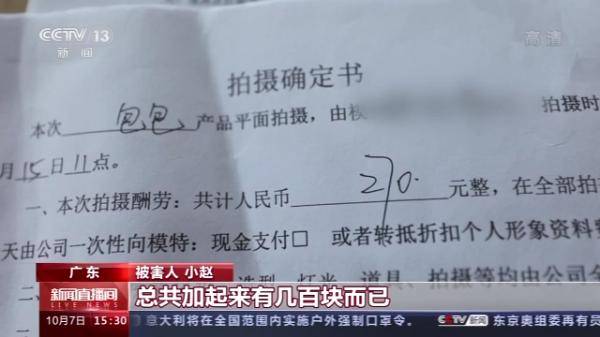 CCTV 13
新闻
高清
拍摄确定书
本次 包包 产品平面拍摄，由模 拍摄时
月15日11点。
一、本次拍摄酬劳：共计人民币 270. 元整，在全部拍
天由公司一次性向模特：现金支付□ 或者转抵折扣个人形象资料整
二、 造型、灯光、道具、拍摄等均由公司全
广东 被害人 小赵
总共加起来有几百块而已
新闻直播间
10月7日 15:30 意大利将在全国范围内实施户外强制口罩令。 CCTV新闻 东京奥组委再有员